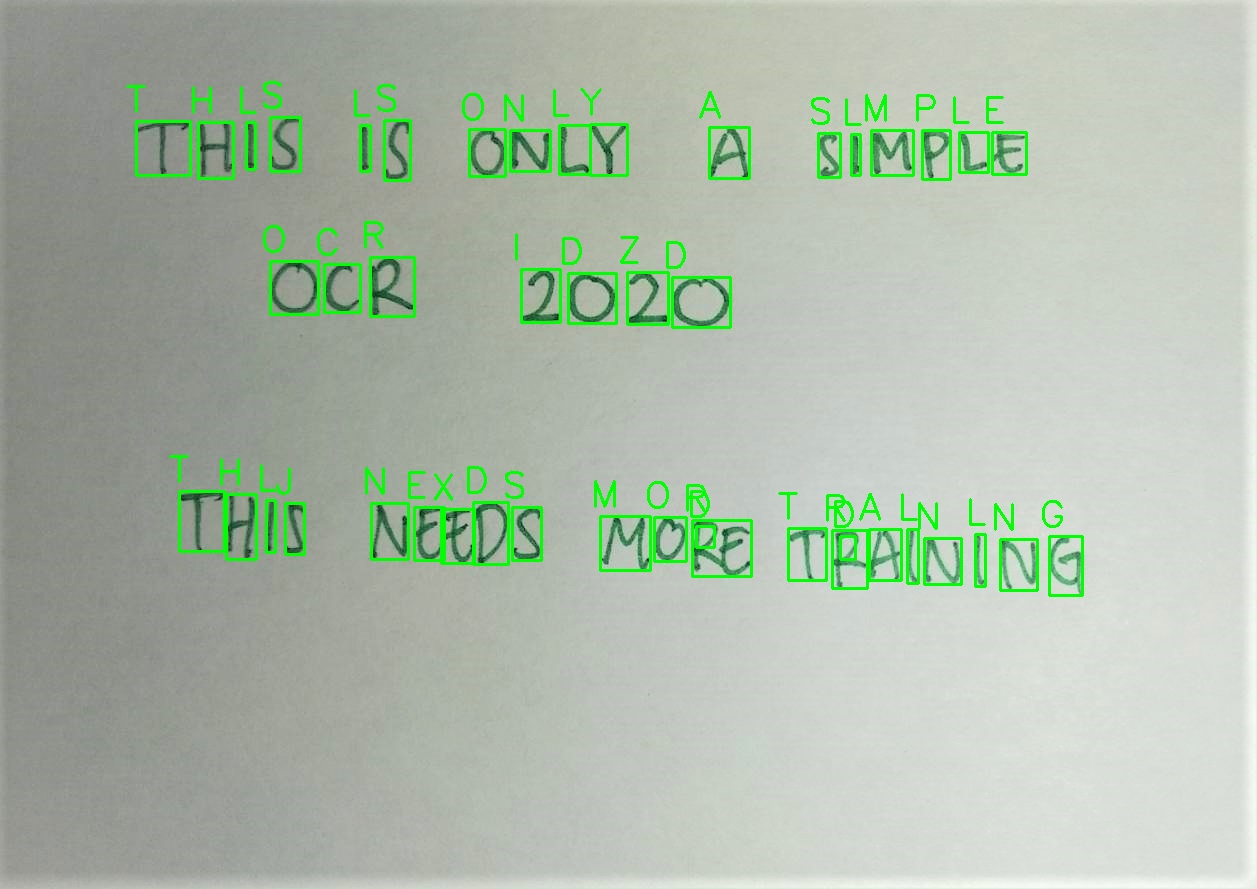 T H L S L S O N L Y A S L M P L E
THIS IS ONLY A SIMPLE
O C R I D Z D
OCR 2020
T H L J N E X D S M O R D T R D A L N L N G
THIS NEEDS MORE TRAINING